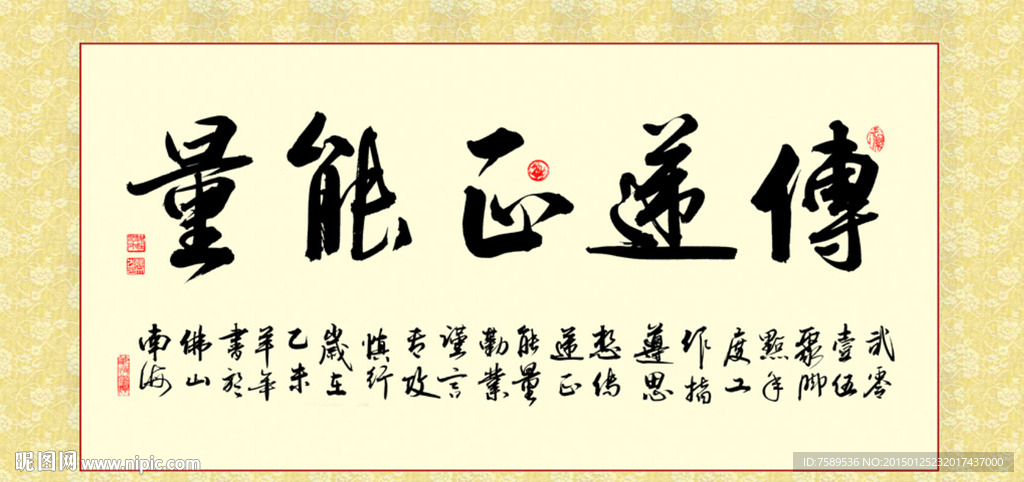 傳遞正能量
貳零
壹伍
聚脚
點手
度工
作指
遵思
愁傳
遞正
能量
勤業
謹言
专攻
慎行
歲在
乙未
羊年
書於
佛山
南海
昵图网 www.nipic.com
ID:7589536 NO:20150125232017437000